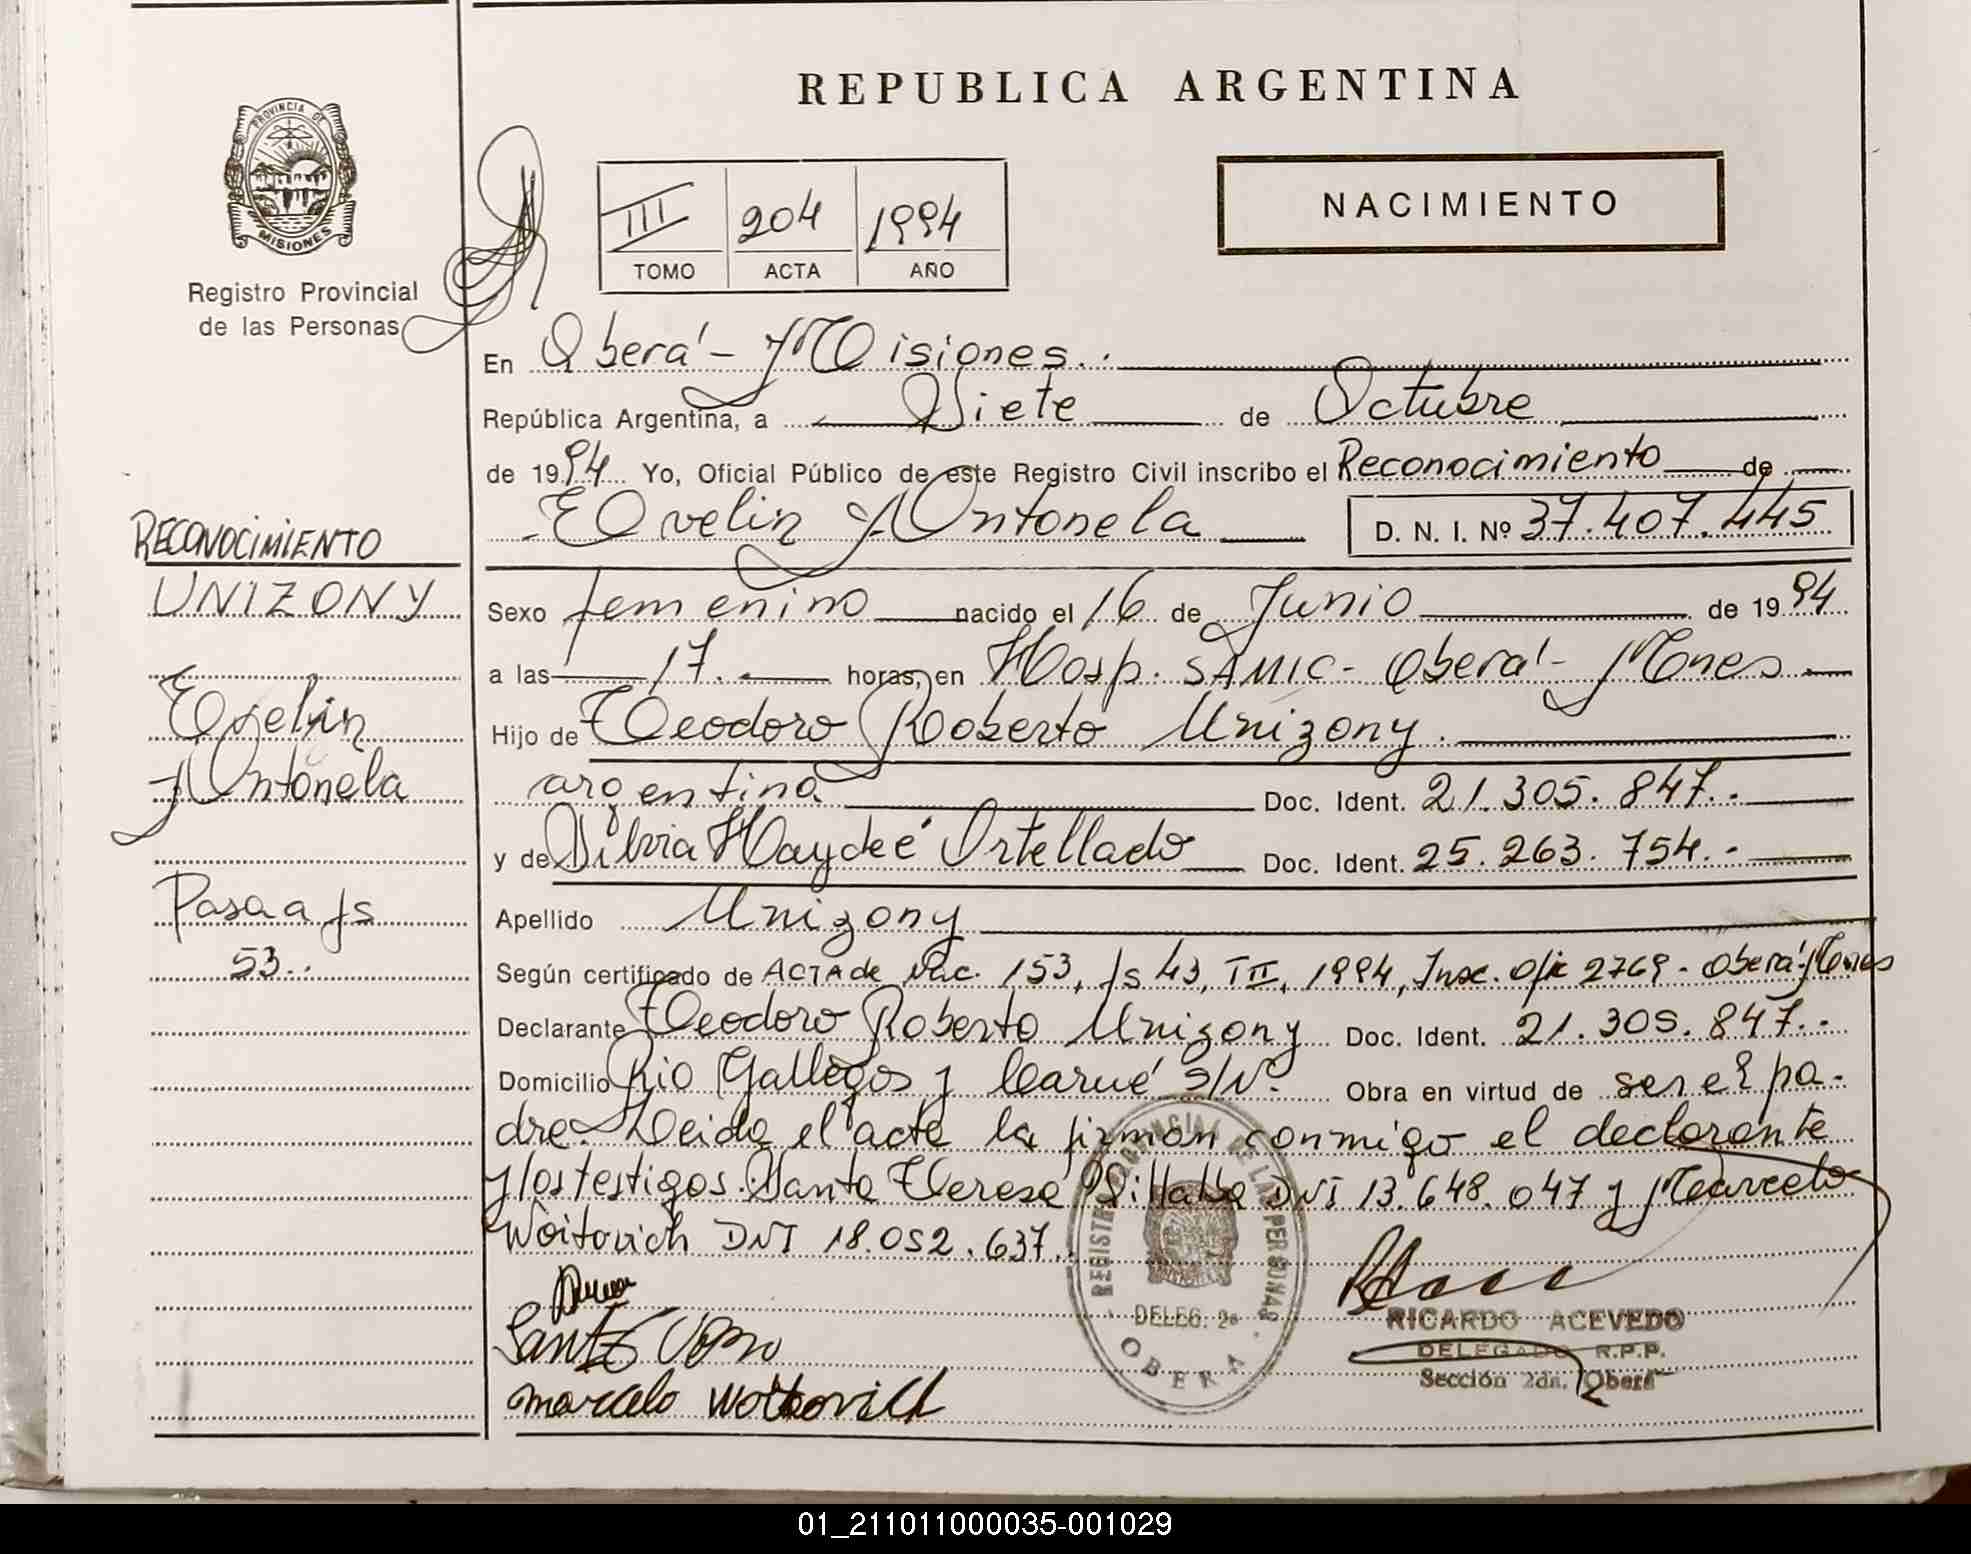 REPUBLICA ARGENTINA
PROVINCIA DE
MISIONES
Registro Provincial
de las Personas
III 204 1994
TOMO ACTA AÑO
NACIMIENTO
En Oberá - Misiones.
República Argentina, a Siete de Octubre
de 1994 Yo, Oficial Público de este Registro Civil inscribo el Reconocimiento de
Evelin Antonela D. N. I. Nº 37.407.445
Sexo femenino nacido el 16 de Junio de 1994
a las 17. horas, en Hosp. SAMIC - Oberá - Mnes
Hijo de Teodoro Roberto Unizony.
argentina Doc. Ident. 21.305.847.-
y de Silvia Haydeé Ortellado Doc. Ident. 25.263.754.-
Apellido Unizony
Según certificado de ACTA de Nac. 153, fs 43, TII, 1994, Insc. Ofic 2769 - Oberá - Mnes
Declarante Teodoro Roberto Unizony Doc. Ident. 21.305.847.-
Domicilio Rio Gallegos y Carué S/Nº. Obra en virtud de ser el pa-
dre. Leida el acta la firman conmigo el declarante
y los testigos. Santa Teresa Villalba DNI 13.648.047 y Marcelo
Woitovich DNI 18.052.637.
RECONOCIMIENTO
UNIZONY
Evelin
Antonela
Pasa a fs
53..
Marcelo Woitovich
REGISTRO PROVINCIAL DE LAS PERSONAS
DELEG. 2a
OBERA
RICARDO ACEVEDO
DELEGADO R.P.P.
Sección 2da. Oberá
01_211011000035-001029